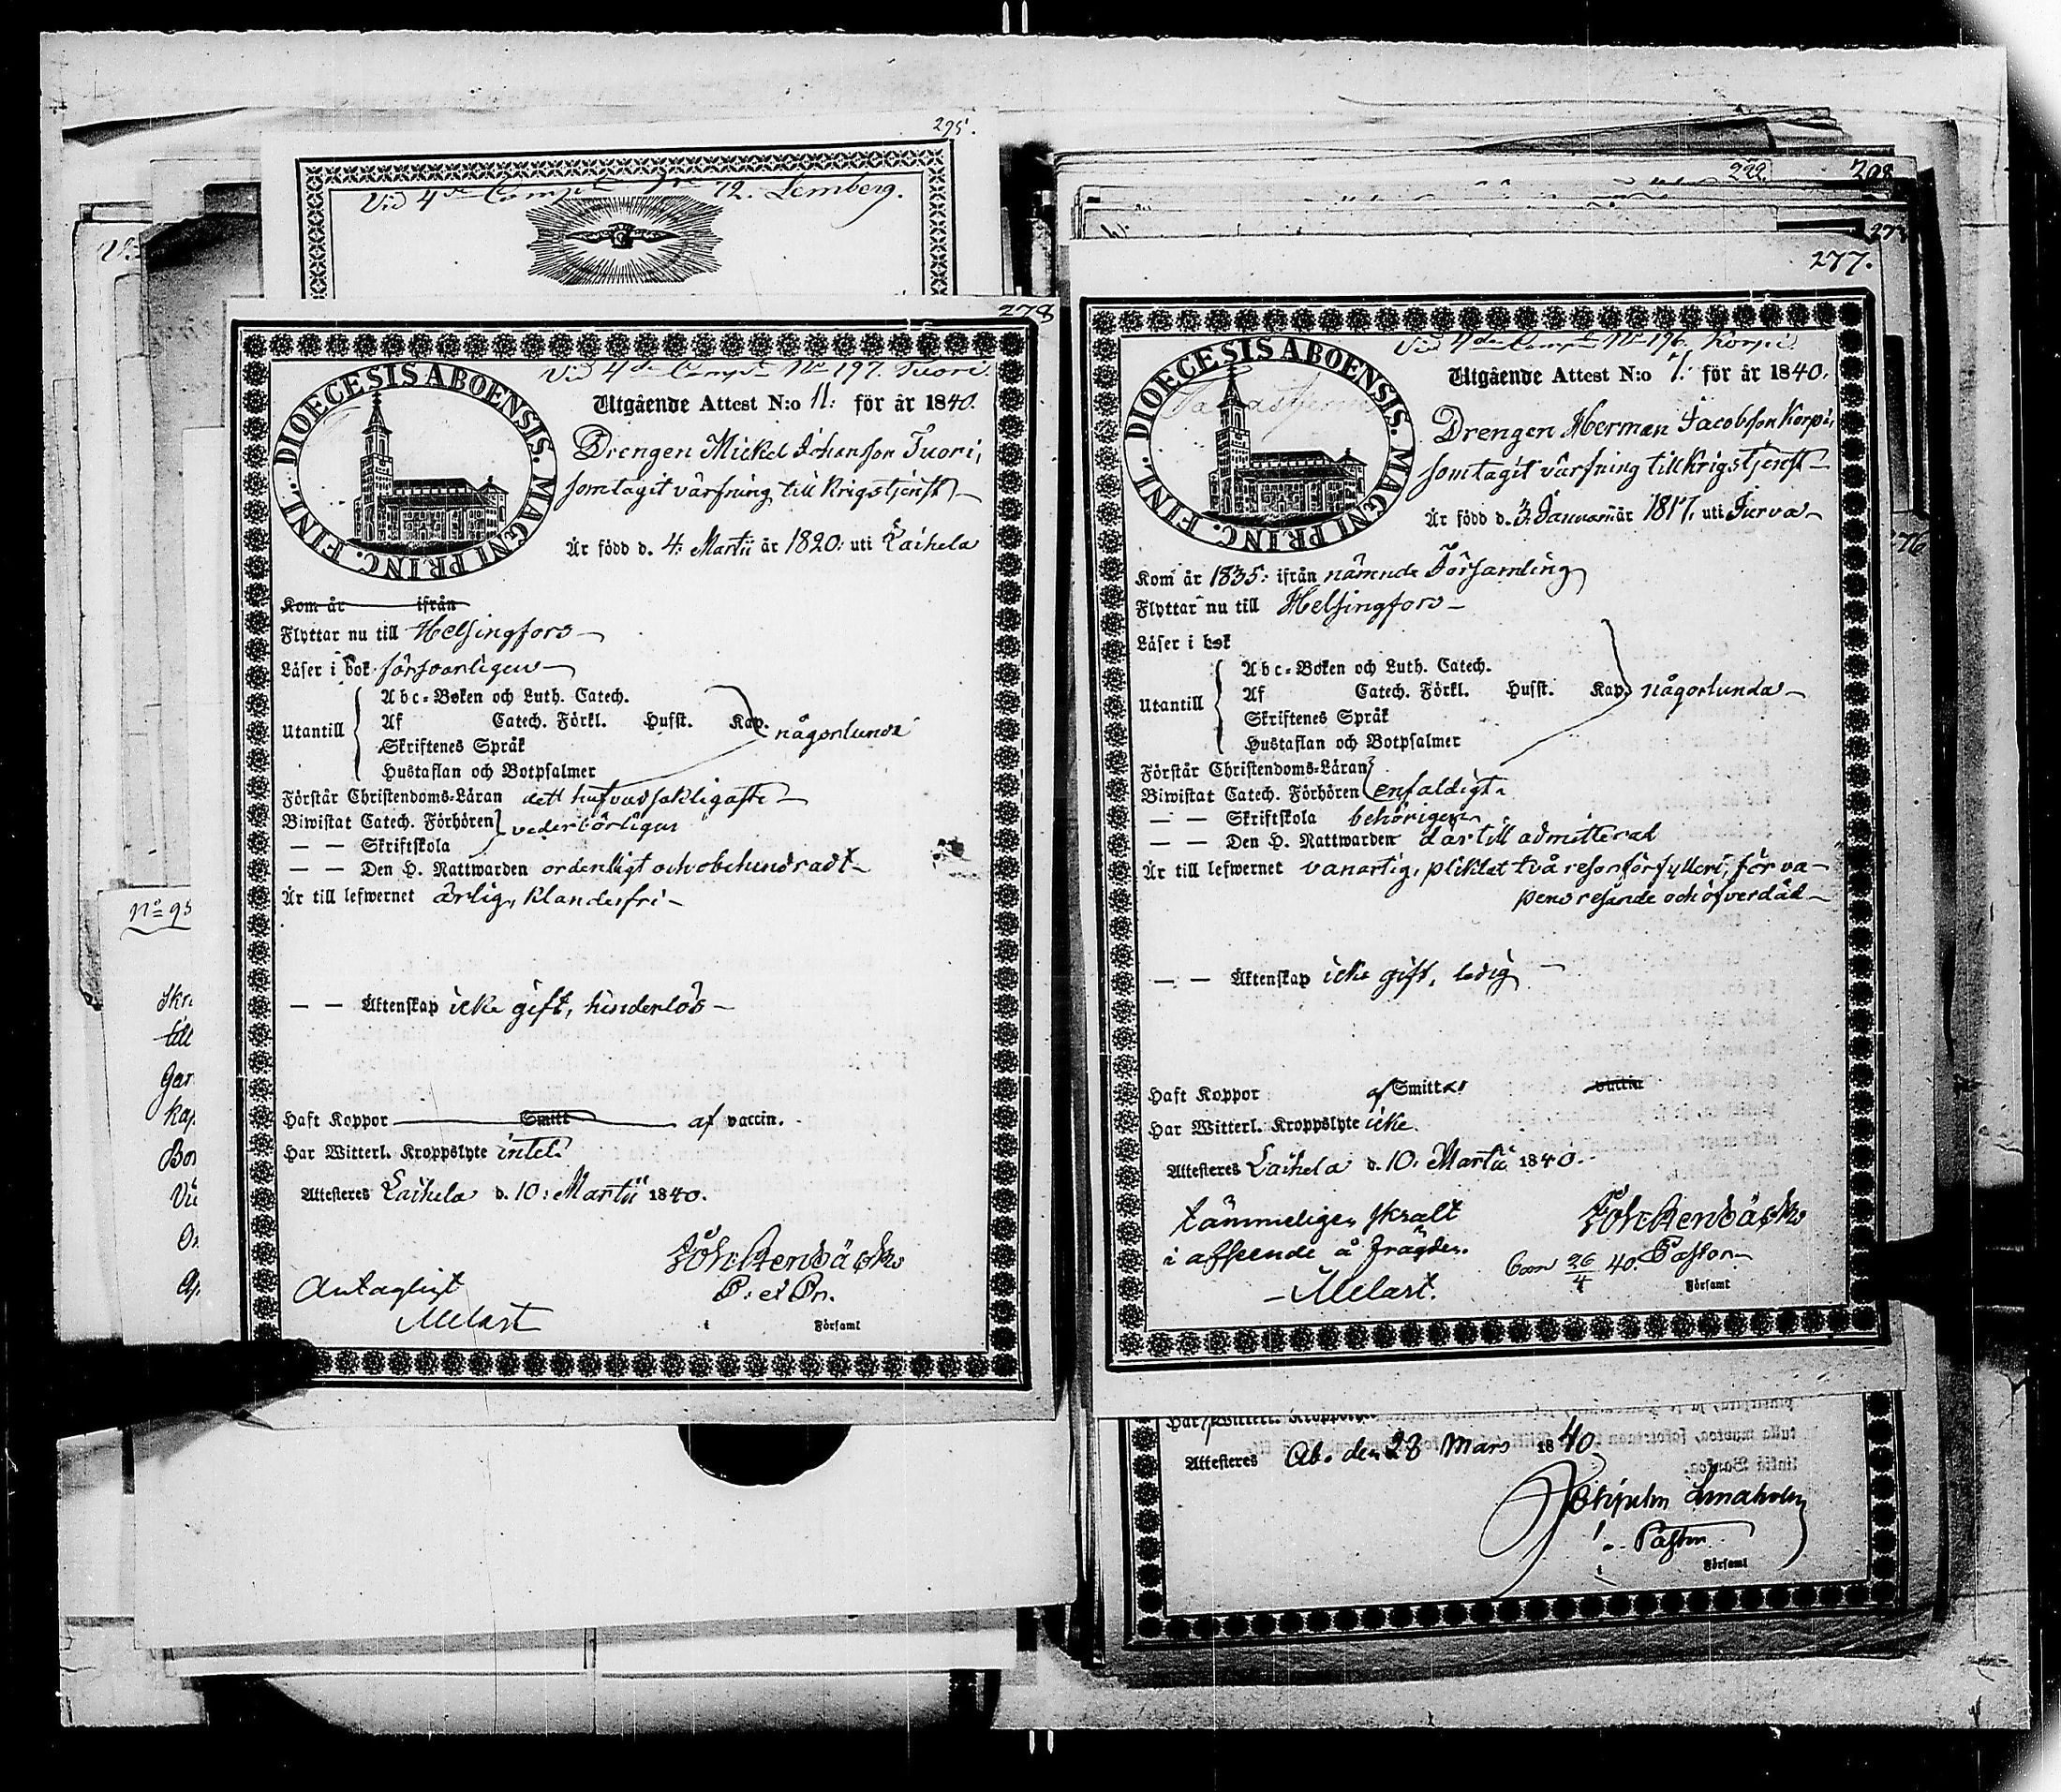 295.
Vid 4de Comp: No 72. Lemberg.
278
Vid 4de Comp: No 197. Tuori.
DIOECESIS ABOENSIS. MAGNI PRINC. FINL.
Utgående Attest N:o 11: för år 1840.
Drengen Mickel Johansson Tuori,
som tagit värfning till Krigstjenst
Är född d. 4: Martii år 1820: uti Laihela
Kom år ifrån
Flyttar nu till Helsingfors
Läser i bok försvarligen
Utantill
Abc-Boken och Luth. Catech.
Af Catech. Förkl. Husst. Kap. någorlunda
Skriftenes Språk
Hustaflan och Botpsalmer
Förstår Christendoms-Läran dett hufvudsakligaste
Biwistat Catech. Förhören vederbörligen
— — Skriftskola
— — Den H. Nattwarden ordentligt och obehindradt
Är till lefwernet ärlig, klanderfri
— — Äktenskap icke gift, hinderlös
Haft Koppor Smitt af vaccin.
Har Witterl. Kroppslyte intet.
Attesteres Laihela d. 10: Martii 1840.
P: et Pn.
Antagligt
Melart
i Församl
No 95
222.
298
277.
Vid 4de Comp: No 196. Korpi
DIOECESIS ABOENSIS. MAGNI PRINC. FINL.
Utgående Attest N:o 7: för år 1840.
Drengen Herman Jacobsson Korpi,
som tagit värfning till Krigstjenst
Är född d. 3. Januarii år 1817. uti Jurva
Kom år 1835: ifrån nämnde Församling
Flyttar nu till Helsingfors
Läser i bok
Utantill
Abc-Boken och Luth. Catech.
Af Catech. Förkl. Husst. Kap. någorlunda
Skriftenes Språk
Hustaflan och Botpsalmer
Förstår Christendoms-Läran
Biwistat Catech. Förhören enfaldigt
— — Skriftskola behörigen
— — Den H. Nattwarden därtill admitterad
Är till lefwernet vanartig, pliktat två resor för fylleri, för va-
pens resande och öfverdåd
— — Äktenskap icke gift, ledig
Haft Koppor af Smitta vaccin
Har Witterl. Kroppslyte icke.
Attesteres Laihela d. 10. Martii 1840.
Pastor
Församl
tämmeligen skralt
i afseende å frägden.
Melart.
26/4 40.
Attesteres Åbo den 28 Mars 1840
Pastor
Församl